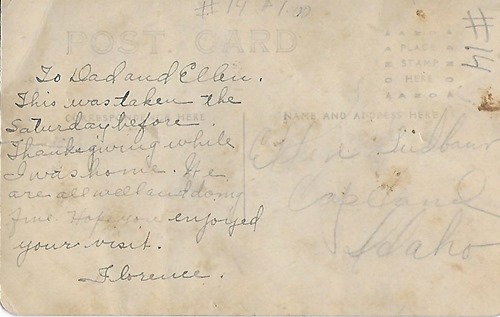 #14 $1.00
#14
POST CARD
PLACE
STAMP
HERE
CORRESPONDENCE HERE
NAME AND ADDRESS HERE
To Dad and Ellen.
This was taken the
Saturday before
Thanksgiving while
I was home. We
are all well and doing
fine. Hope you enjoyed
your visit.
Florence.
Ellen
Idaho